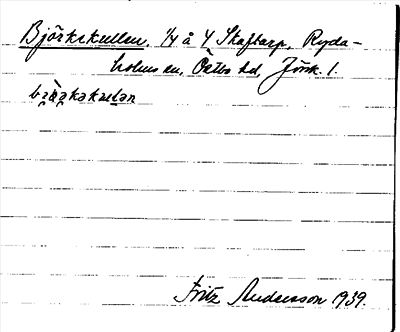 Björkskullen, 1/4 å 4 Skaftarp, Ryda-
holms sn, Östbo hd, Jönk. l.
Fritz Andersson 1939.